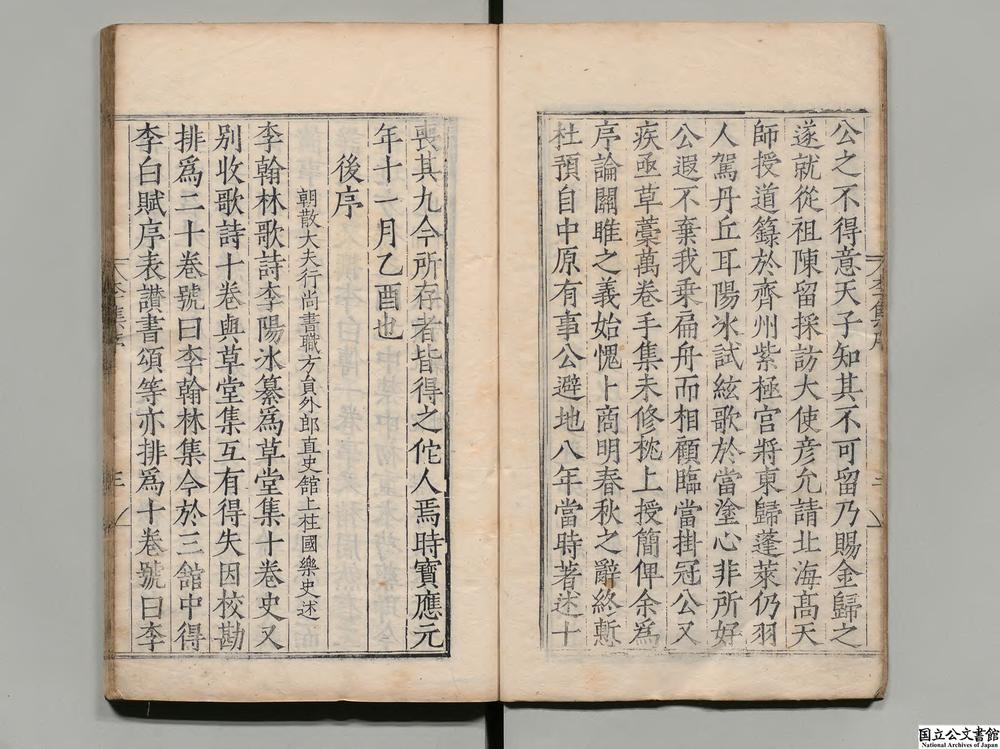 公之不得意天子知其不可留乃賜金歸之
遂就從祖陳留採訪大使彥允請北海髙天
師授道籙於齊州紫極宮將東歸蓬萊仍羽
人駕丹丘耳陽冰試絃歌於當塗心非所好
公遐不棄我乗扁舟而相顧臨當掛冠公又
疾亟草藁萬卷手集未修枕上授簡俾余爲
序論關雎之義始愧卜商明春秋之辭終慙
杜預自中原有事公避地八年當時著述十
喪其九今所存者皆得之佗人焉時寳應元
年十一月乙酉也
後序
朝散大夫行尚書職方員外郎直史館上柱國樂史述
李翰林歌詩李陽冰纂爲草堂集十卷史又
別收歌詩十卷與草堂集互有得失因校勘
排爲二十卷號曰李翰林集今於三舘中得
李白賦序表讃書頌等亦排爲十卷號曰李
国立公文書館
National Archives of Japan